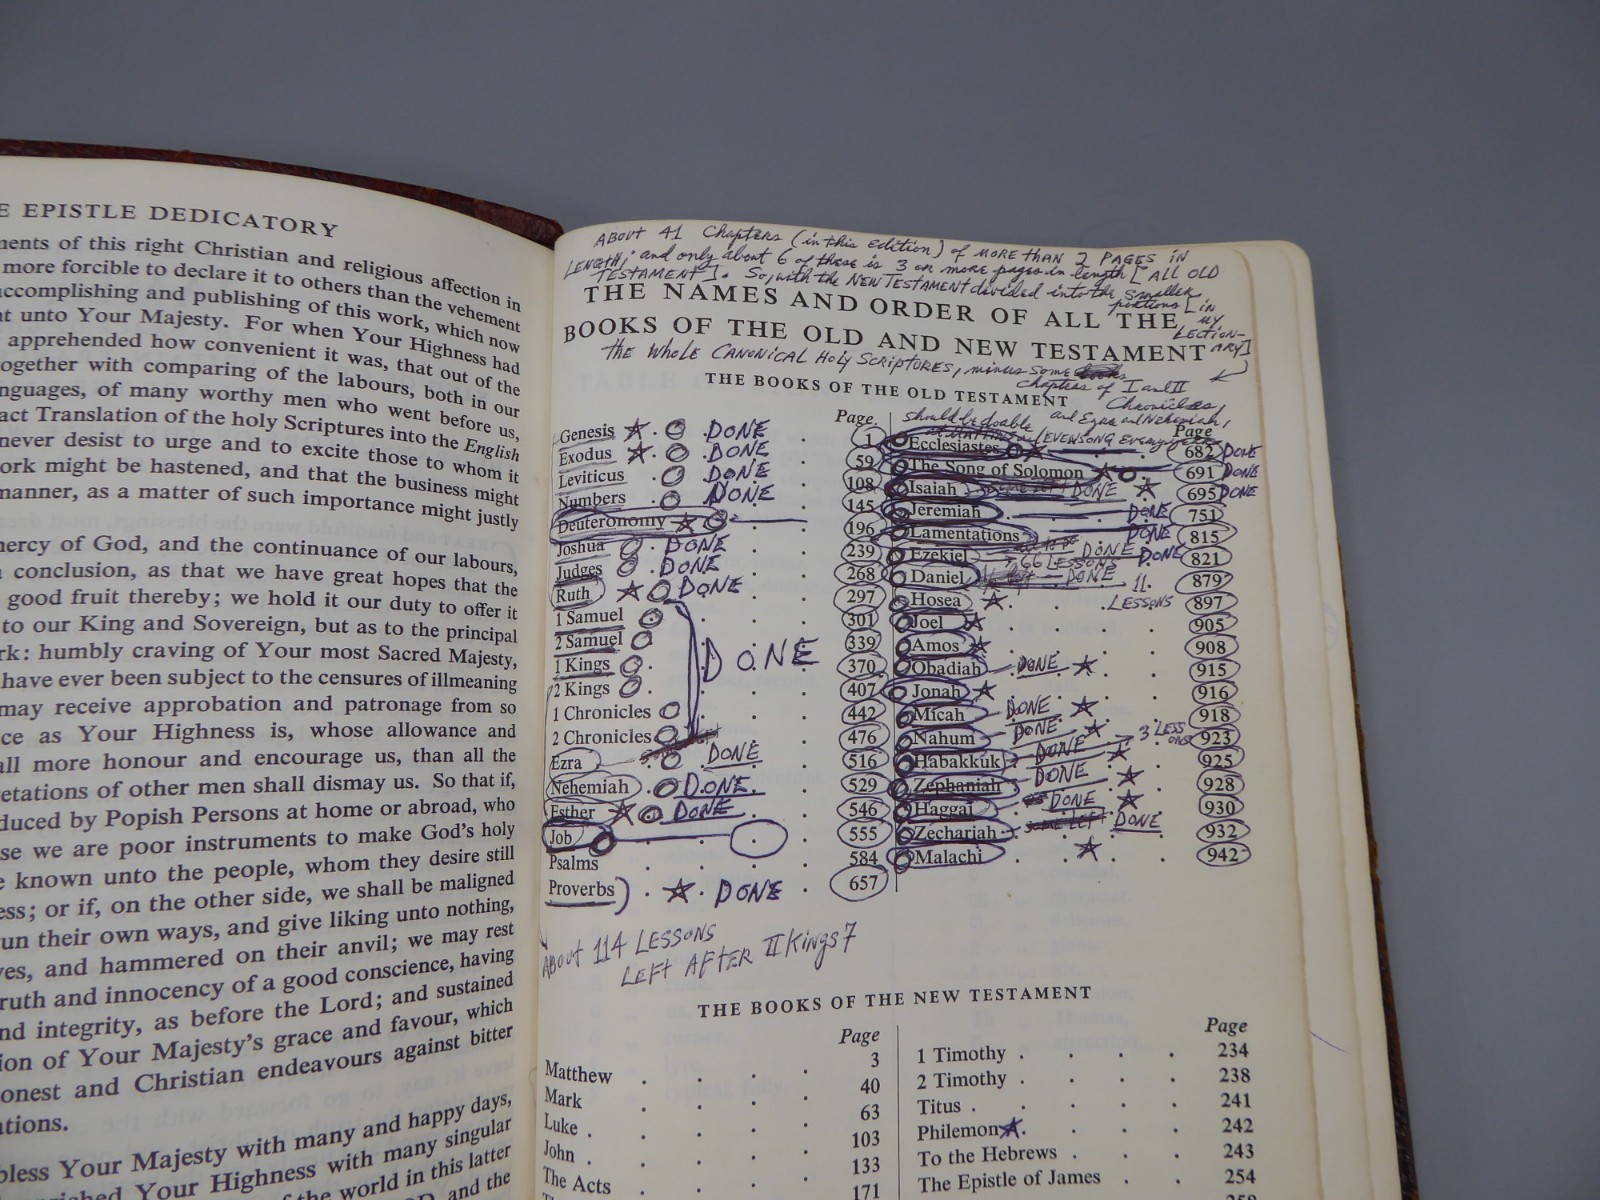 E EPISTLE DEDICATORY
ments of this right Christian and religious affection in
more forcible to declare it to others than the vehement
accomplishing and publishing of this work, which now
nt unto Your Majesty. For when Your Highness had
apprehended how convenient it was, that out of the
together with comparing of the labours, both in our
nguages, of many worthy men who went before us,
act Translation of the holy Scriptures into the English
never desist to urge and to excite those to whom it
ork might be hastened, and that the business might
manner, as a matter of such importance might justly
mercy of God, and the continuance of our labours,
conclusion, as that we have great hopes that the
good fruit thereby; we hold it our duty to offer it
to our King and Sovereign, but as to the principal
rk: humbly craving of Your most Sacred Majesty,
have ever been subject to the censures of illmeaning
may receive approbation and patronage from so
ce as Your Highness is, whose allowance and
all more honour and encourage us, than all the
retations of other men shall dismay us. So that if,
duced by Popish Persons at home or abroad, who
se we are poor instruments to make God's holy
e known unto the people, whom they desire still
ess; or if, on the other side, we shall be maligned
un their own ways, and give liking unto nothing,
ves, and hammered on their anvil; we may rest
ruth and innocency of a good conscience, having
nd integrity, as before the Lord; and sustained
ion of Your Majesty's grace and favour, which
onest and Christian endeavours against bitter
ations.
bless Your Majesty with many and happy days,
Your Highness with many singular
f the world in this latter
and the
About 41 Chapters (in this edition) of more than 2 pages in
length; and only about 6 of these is 3 or more pages in length [All Old
Testament]. So, with the New Testament divided into the smaller
portions [in
my
lection-
ary]
THE NAMES AND ORDER OF ALL THE
BOOKS OF THE OLD AND NEW TESTAMENT
The whole canonical Holy Scriptures, minus some
chapters of I and II
Chronicles,
and Ezra and Nehemiah,
should be doable
THE BOOKS OF THE OLD TESTAMENT
Page
Genesis DONE 1
Exodus DONE 59
Leviticus DONE 108
Numbers DONE 145
Deuteronomy 196
Joshua DONE 239
Judges DONE 268
Ruth DONE 297
1 Samuel 301
2 Samuel 339
1 Kings DONE 370
2 Kings 407
1 Chronicles 442
2 Chronicles 476
Ezra DONE 516
Nehemiah DONE 529
Esther DONE 546
Job 555
Psalms 584
Proverbs DONE 657
Page
Ecclesiastes 682 DONE
The Song of Solomon 691 DONE
Isaiah DONE 695 DONE
Jeremiah DONE 751
Lamentations DONE 815
Ezekiel 66 LESSONS DONE DONE 821
Daniel DONE 11 879
Hosea LESSONS 897
Joel 905
Amos 908
Obadiah DONE 915
Jonah 916
Micah DONE 918
Nahum DONE 3 LESSONS 923
Habakkuk DONE 925
Zephaniah DONE 928
Haggai DONE 930
Zechariah some left DONE 932
Malachi 942
About 114 LESSONS
LEFT AFTER II Kings 7
THE BOOKS OF THE NEW TESTAMENT
Page
Matthew 3
Mark 40
Luke 63
John 103
The Acts 133
171
Page
1 Timothy 234
2 Timothy 238
Titus 241
Philemon 242
To the Hebrews 243
The Epistle of James 254